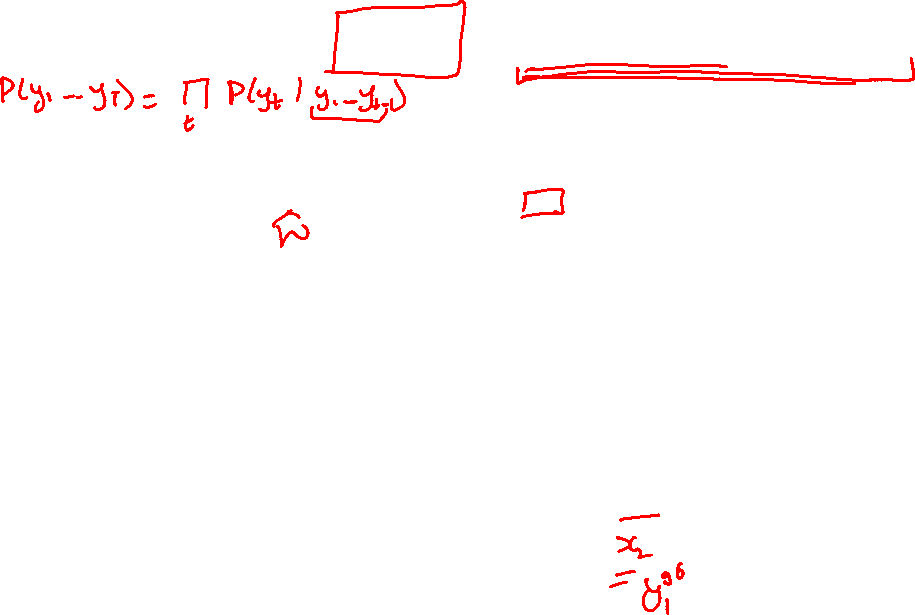 P(y₁ – y_T) = ∏_t P(y_t | y₁ – y_{t-1})
x₂
= y₁⁹⁶